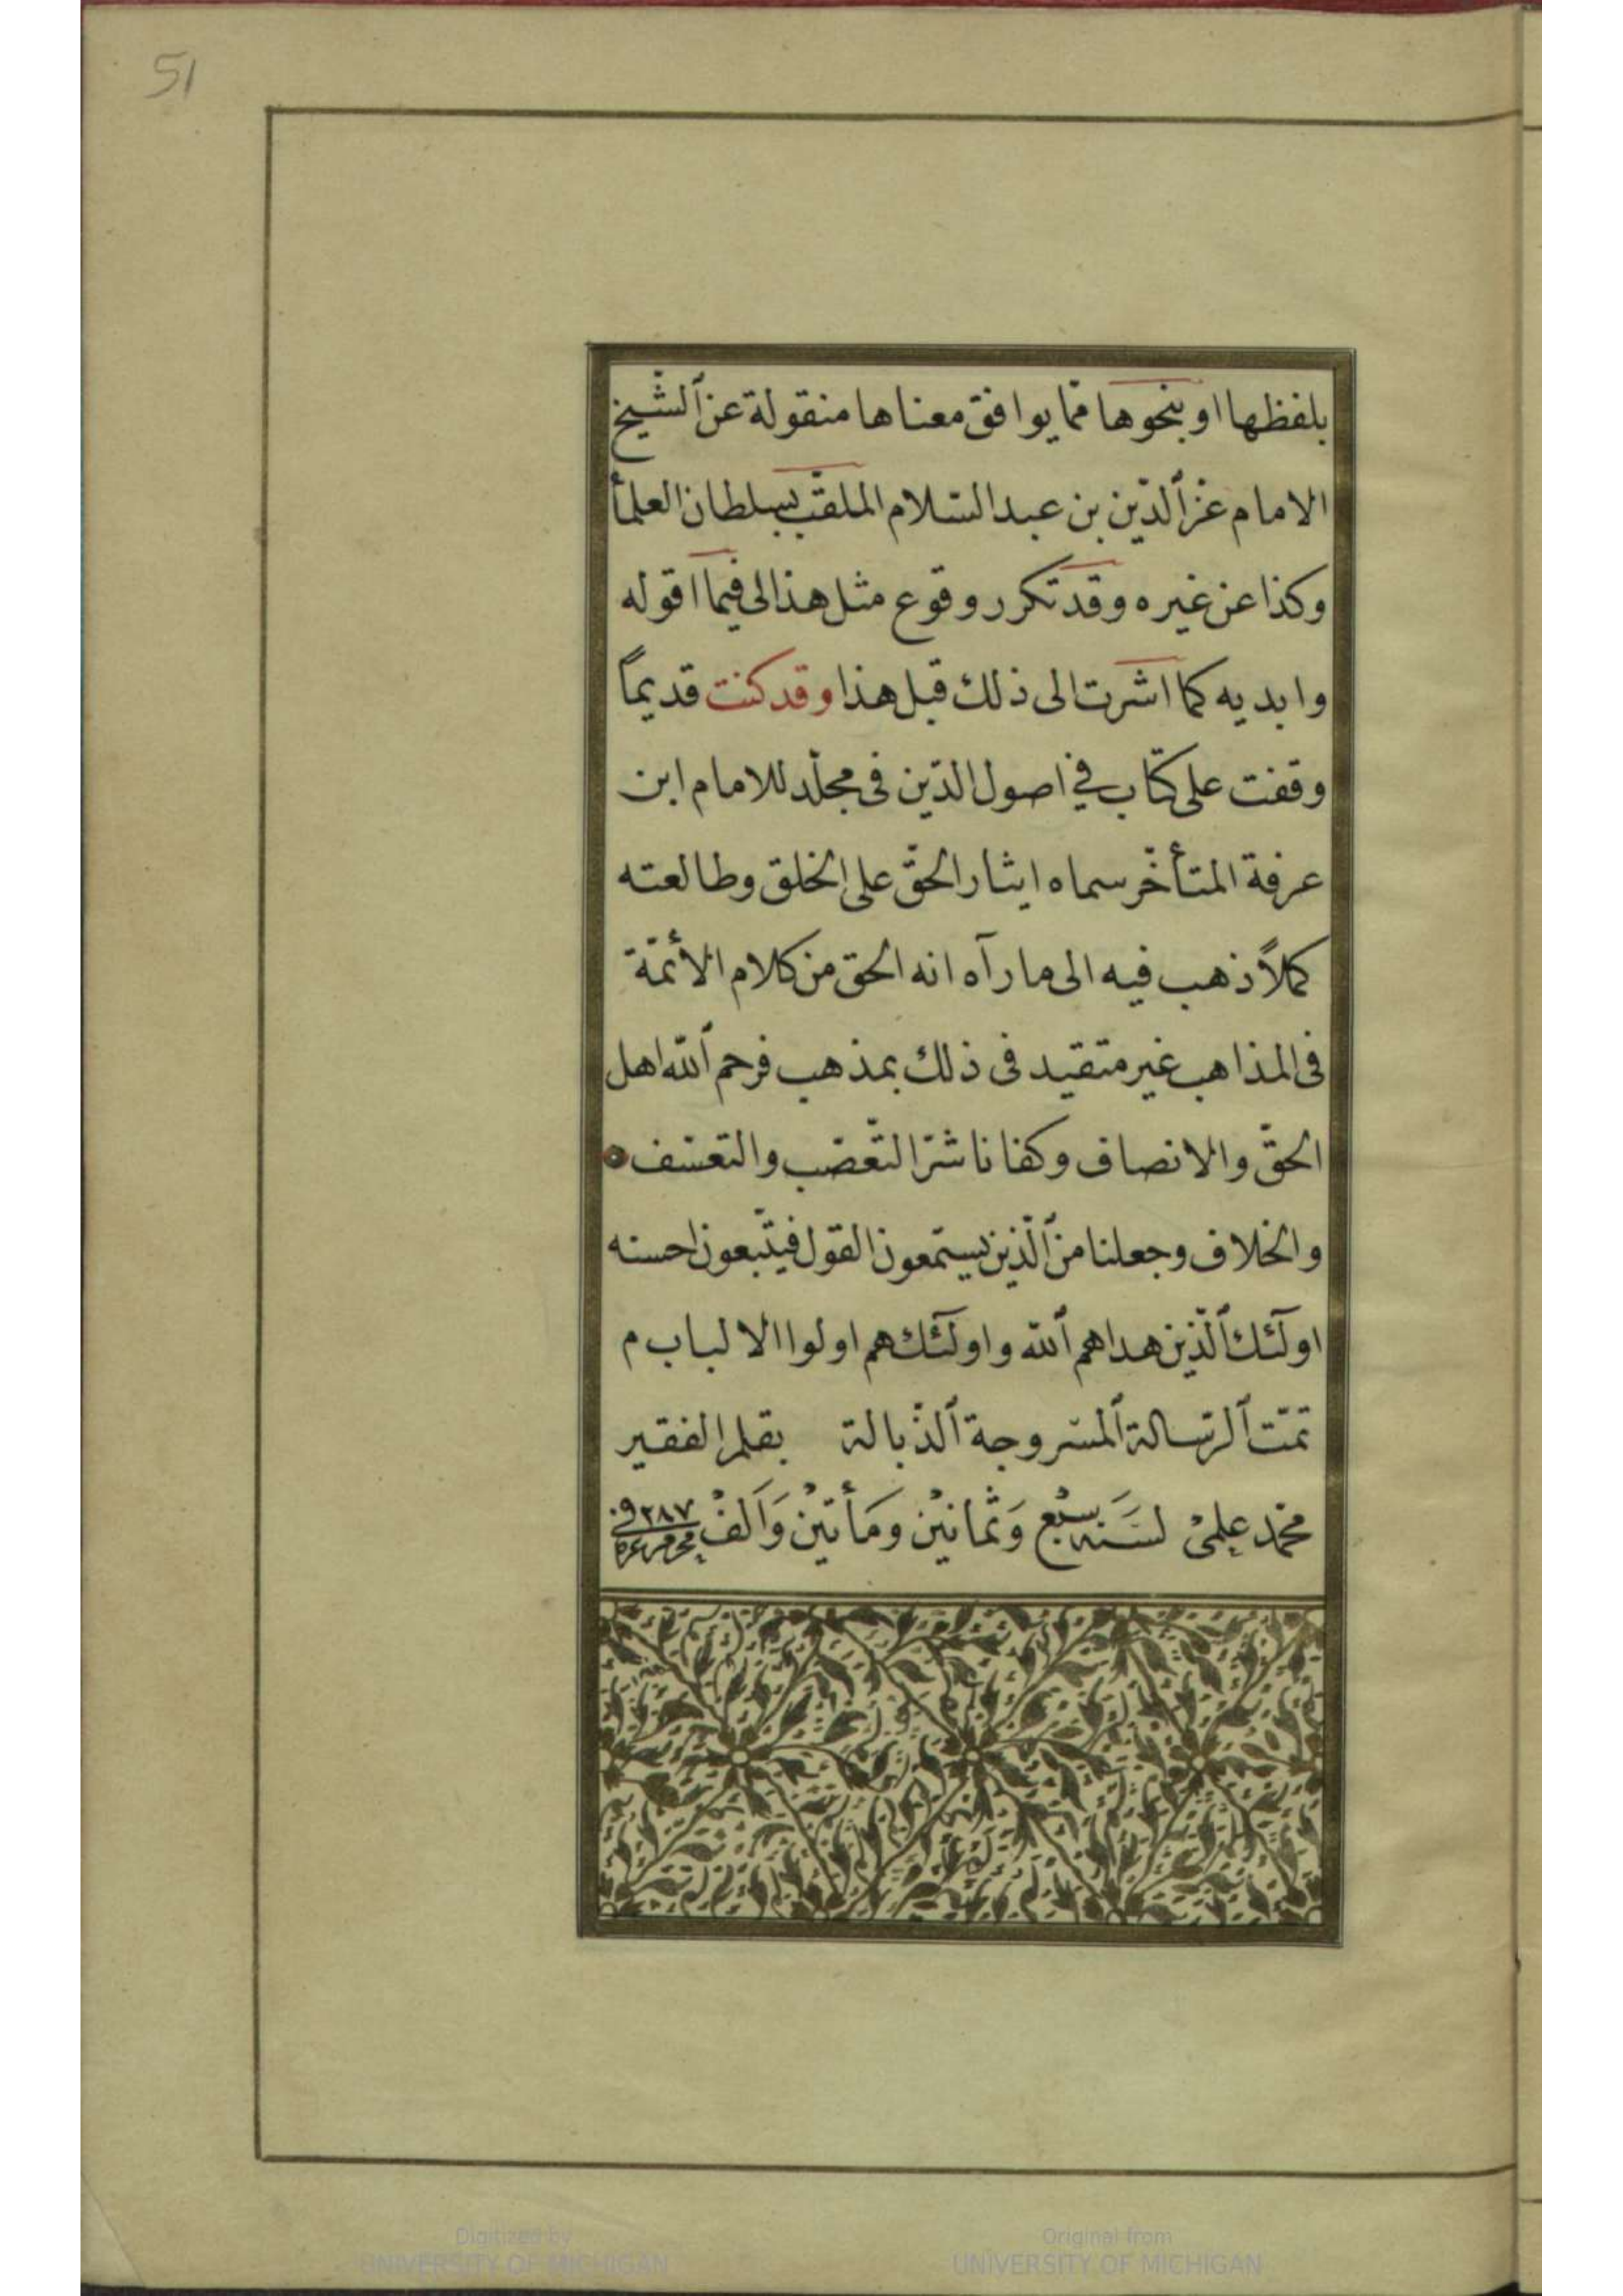 51
بلفظها او بنحوها ممّا يوافق معناها منقولة عن ٱلشّيخ
الامام عزّ ٱلدّين بن عبد السّلام الملقّب بسلطان العلمأ
وكذا عن غيره وقد تكرر وقوع مثل هذا لى فيما اقوله
وابديه كما اشرت الى ذلك قبل هذا وقد كنت قديماً
وقفت على كتاب في اصول الدّين فى مجلّد للامام ابن
عرفة المتأخّر سماه ايثار الحقّ على الخلق وطالعته
كملاً ذهب فيه الى ما رآه انه الحق من كلام الأئمّة
فى المذاهب غير متقيد فى ذلك بمذهب فرحم ٱللّه اهل
الحقّ والانصاف وكفانا شرّ التّعصّب والتعسّف
والخلاف وجعلنا من ٱلّذين يستمعون القول فيتّبعون احسنه
اولٓئك ٱلّذين هداهم ٱللّه واولٓئك هم اولوا الالباب م
تمّت ٱلرّسالة ٱلمسّروجة ٱلذّبالة بقلم الفقير
محمّد علمىْ لسَنَه سبْع وَثمانيْن ومَأتيْن وَالفْ ٢٨٧ فى
Digitized by
UNIVERSITY OF MICHIGAN
Original from
UNIVERSITY OF MICHIGAN